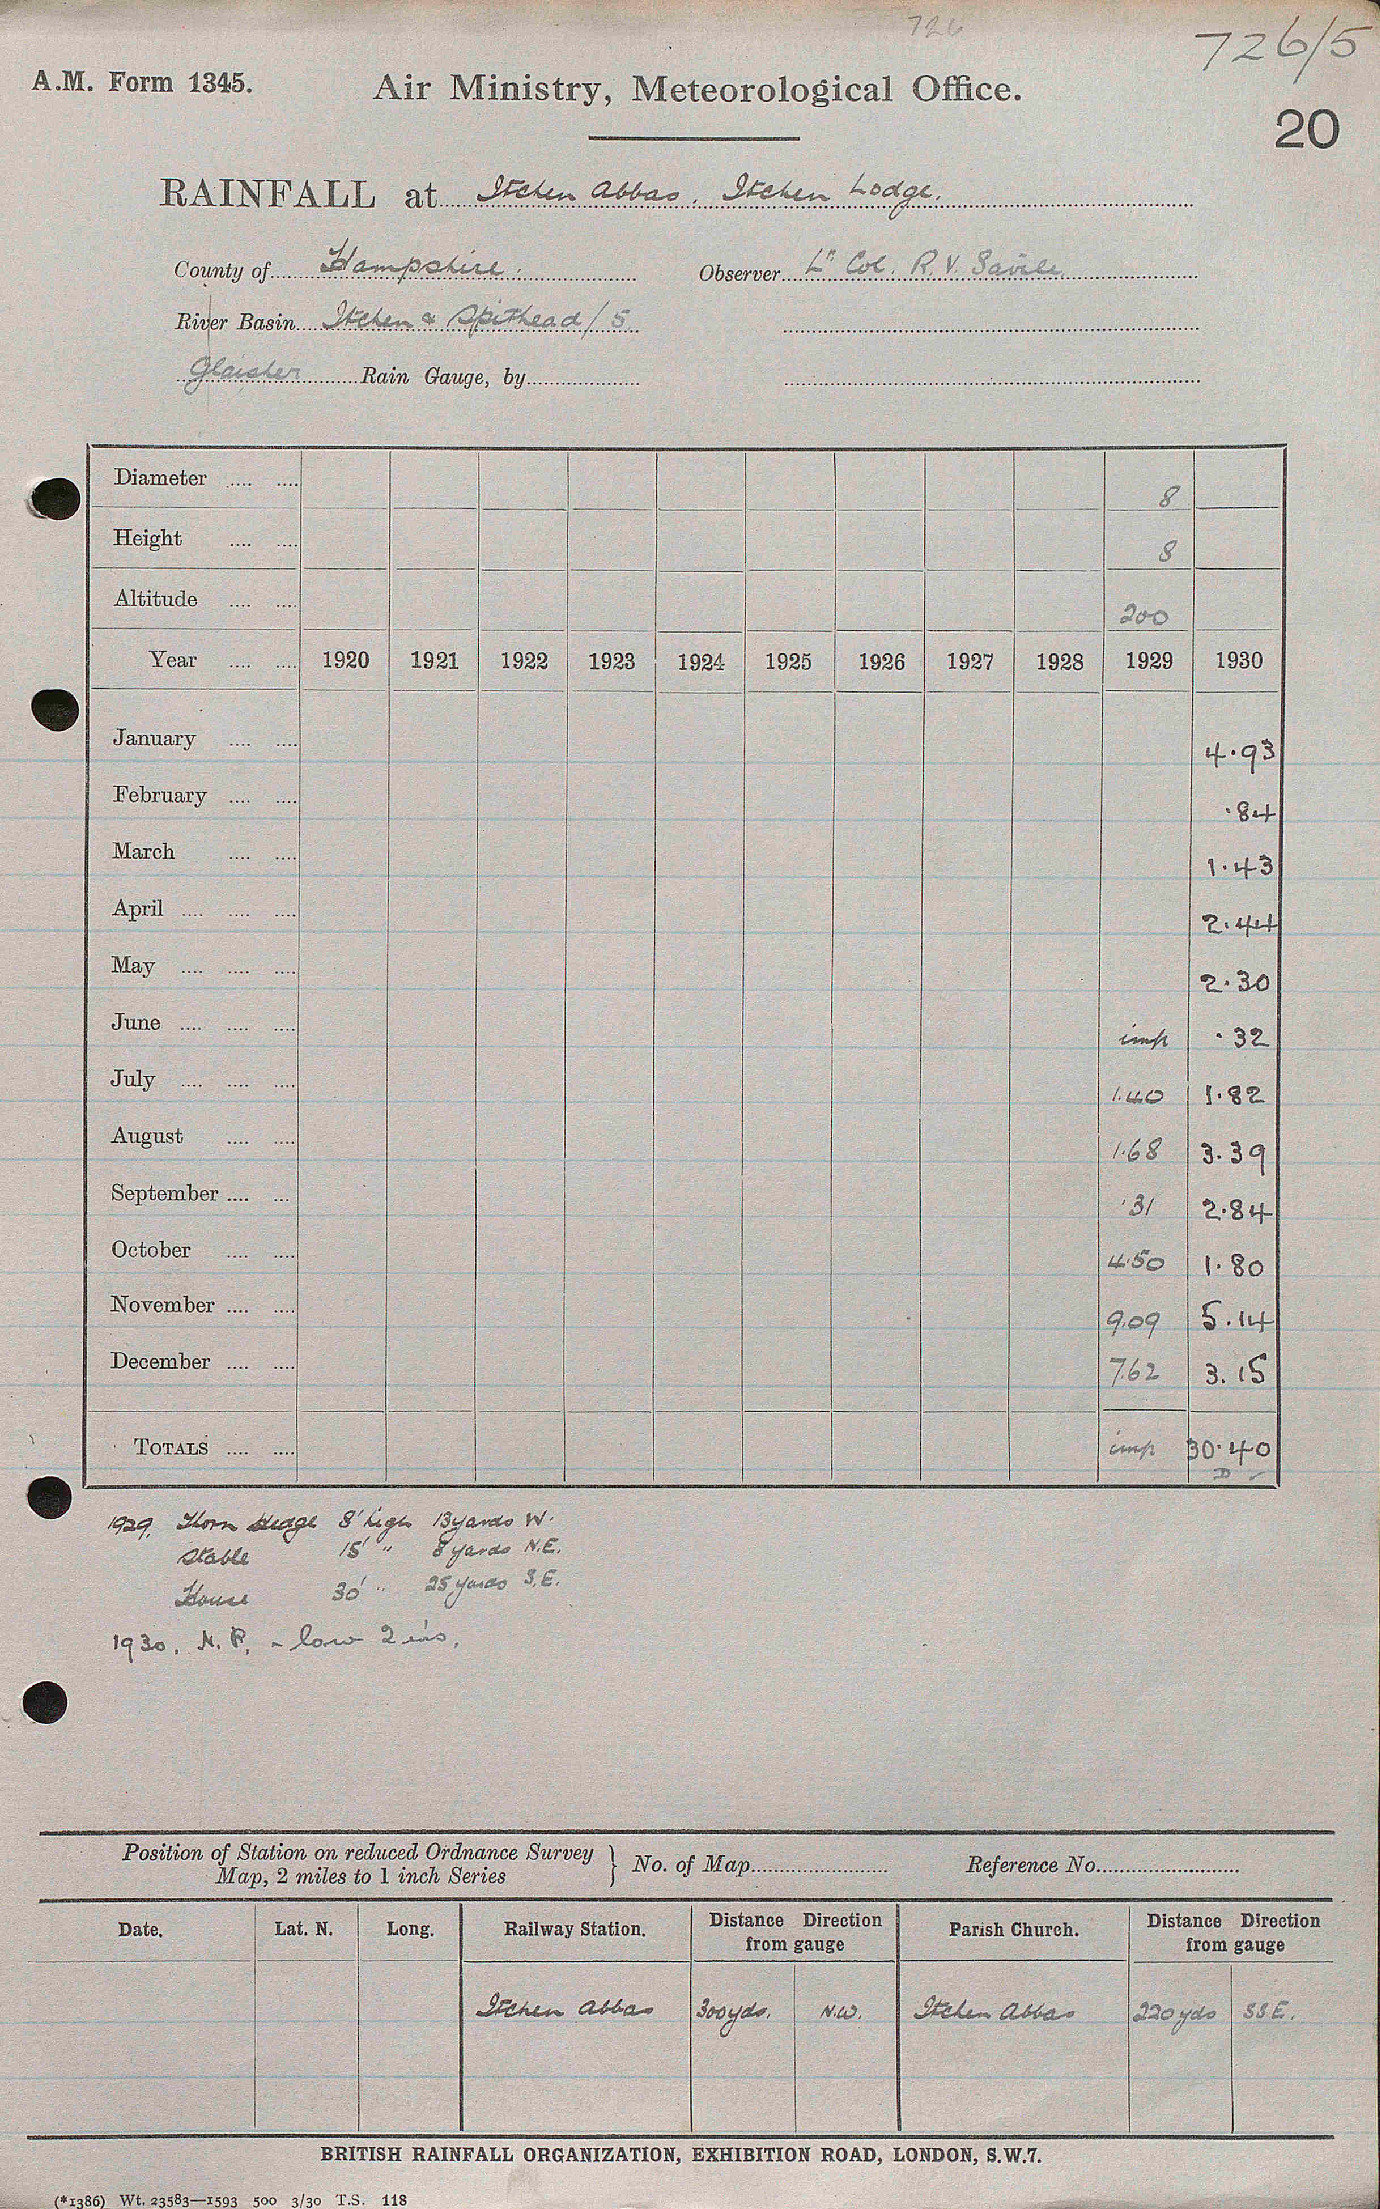 726
726/5
A.M. Form 1345. Air Ministry, Meteorological Office.
20
RAINFALL at Itchen Abbas. Itchen Lodge.
County of Hampshire. Observer Lt Col. R. V. Savile
River Basin Itchen & Spithead/5
Glaisher Rain Gauge, by
Diameter 8
Height 8
Altitude 200
Year 1920 1921 1922 1923 1924 1925 1926 1927 1928 1929 1930
January 4.93
February .84
March 1.43
April 2.44
May 2.30
June imp .32
July 1.40 1.82
August 1.68 3.39
September .31 2.84
October 4.50 1.80
November 9.09 5.14
December 7.62 3.15
TOTALS imp 30.40
D ✓
1929. Thorn Hedge 8' high 13 yards W.
Stable 15' " 8 yards N.E.
House 30' " 25 yards S.E.
1930. N.P. - low 2 ins.
Position of Station on reduced Ordnance Survey Map, 2 miles to 1 inch Series } No. of Map Reference No.
Date. Lat. N. Long. Railway Station. Distance Direction from gauge Parish Church. Distance Direction from gauge
Itchen Abbas 300yds. N.W. Itchen Abbas 220yds SSE.
BRITISH RAINFALL ORGANIZATION, EXHIBITION ROAD, LONDON, S.W.7.
(*1386) Wt. 23583—1593 500 3/30 T.S. 118